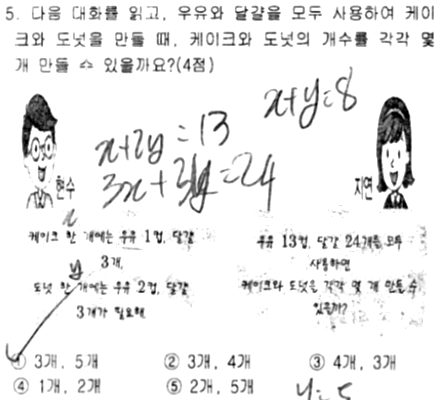 5. 다음 대화를 읽고, 우유와 달걀을 모두 사용하여 케이
크와 도넛을 만들 때, 케이크와 도넛의 개수를 각각 몇
개 만들 수 있을까요?(4점)
x+y=8
x+2y=13
3x+3y=24
현수
지연
x
케이크 한 개에는 우유 1컵, 달걀
3개,
y
도넛 한 개에는 우유 2컵, 달걀
3개가 필요해
우유 13컵, 달걀 24개를 모두
사용하면
케이크와 도넛을 각각 몇 개 만들 수
있을까?
① 3개, 5개 ② 3개, 4개 ③ 4개, 3개
④ 1개, 2개 ⑤ 2개, 5개
y=5